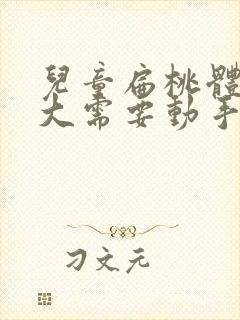 兒童扁桃體
大需要動手
刁文元